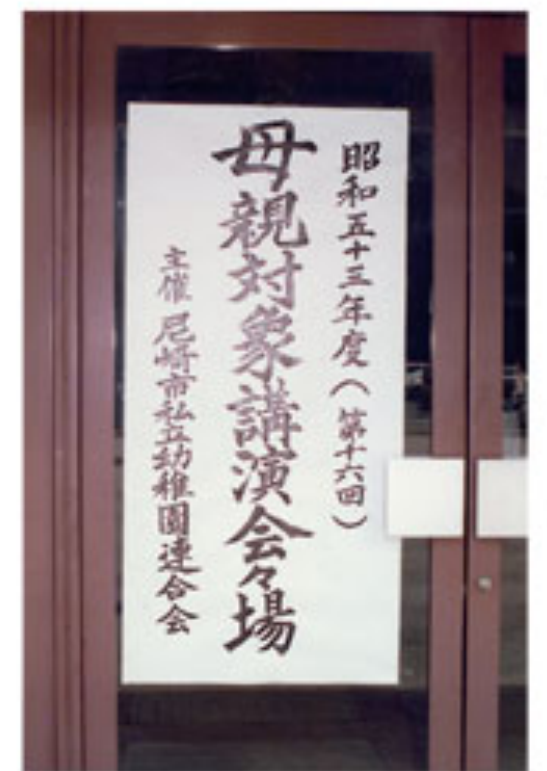 昭和五十三年度(第十六回)
母親対象講演会々場
主催 尼崎市私立幼稚園連合会